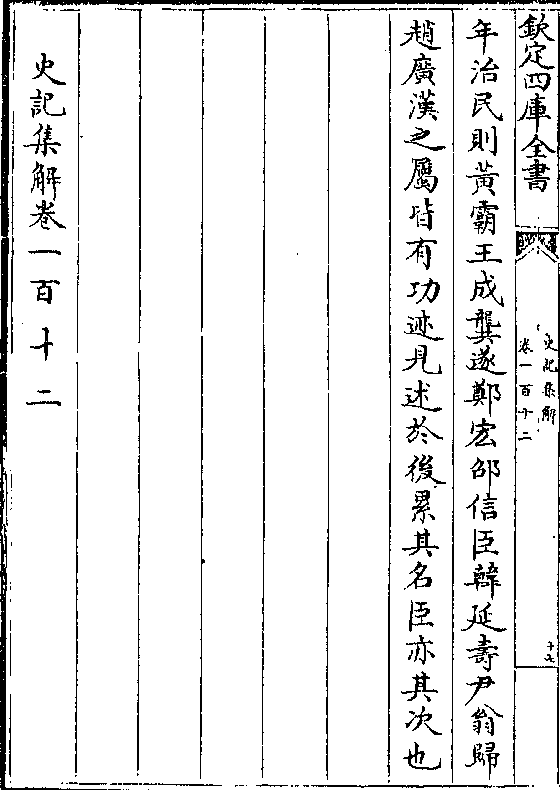 欽定四庫全書
史記集解
卷一百十二
十七
年治民則黃霸王成龔遂鄭宏邵信臣韓延壽尹翁歸
趙廣漢之屬皆有功迹見述於後累其名臣亦其次也
史記集解卷一百十二